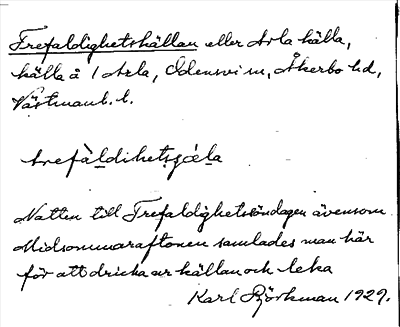 Trefaldighetskällan eller Arla källa,
källa å 1 Arla, Odensvi sn, Åkerbo hd,
Västmanl. l.
trefàldihetsɡála
Natten till Trefaldighetssöndagen ävensom
Midsommaraftonen samlades man här
för att dricka ur källan och leka
Karl Björkman 1929.